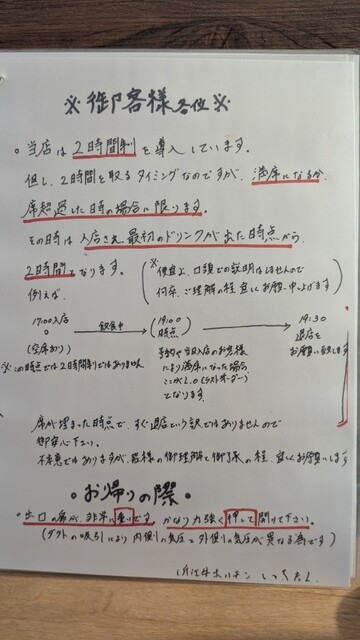 ※御客様各位※
。当店は2時間制を導入しています。
但し、2時間を取るタイミングなのですが、満席になるか
席超過した時の場合に限ります。
その時は入店され最初のドリンクが出た時点から
2時間となります。
(※便宜上、口頭での説明は しませんので
何卒、ご理解の程 宜しくお願い申し上げます)
例えば
17:00入店 飲食中 (19:00) 19:30
(空席あり) 時点 退店を
お願い致します
※この時点では2時間制ではありません
予約や当日入店のお客様
により満席になった場合
ここがL.O(ラストオーダー)
となります。
席が埋まった時点で、すぐ退店という訳ではありませんので
御安心下さい。
不本意ではありますが、皆様の御理解と御了承の程、宜しくお願いします
。お帰りの際。
。出口の扉が、非常に重いです。かなり力強く押して開けて下さい。
(ダクトの吸引により内側の気圧と外側の気圧が異なる為です)
近江牛ホルモン